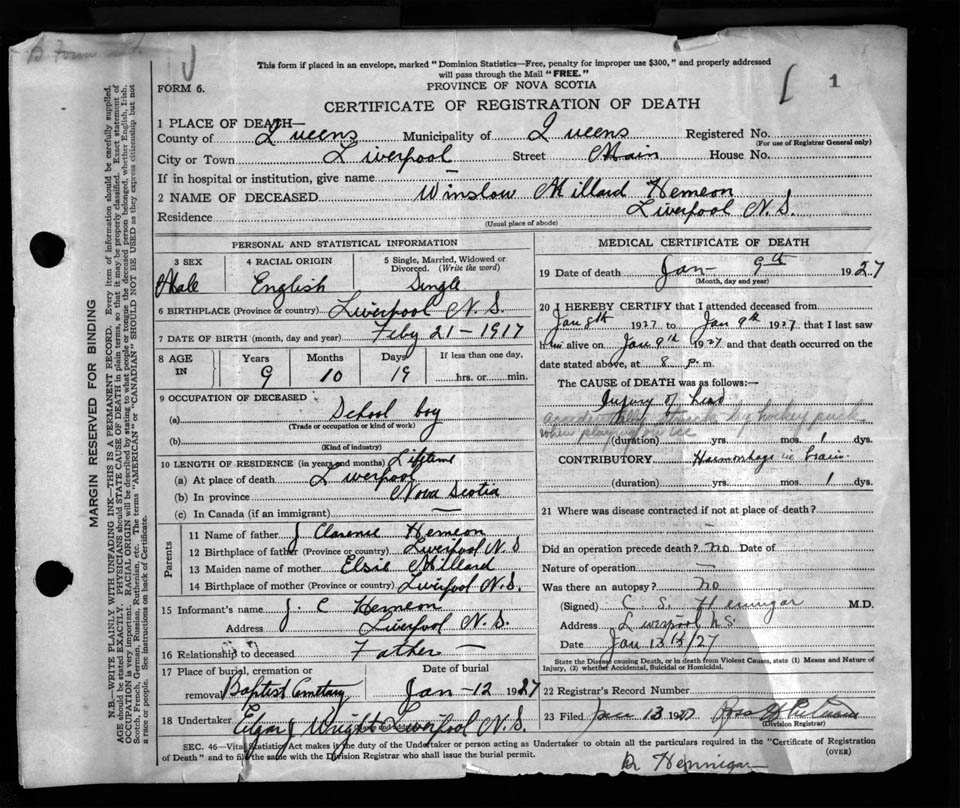 B. Form
1
This form if placed in an envelope, marked "Dominion Statistics—Free, penalty for improper use $300," and properly addressed
will pass through the Mail "FREE."
FORM 6.
PROVINCE OF NOVA SCOTIA
CERTIFICATE OF REGISTRATION OF DEATH
1 PLACE OF DEATH—
County of Queens Municipality of Queens Registered No.
(For use of Registrar General only)
City or Town Liverpool Street Main House No.
If in hospital or institution, give name —
2 NAME OF DECEASED Winslow Millard Hemeon
Residence Liverpool N. S.
(Usual place of abode)
PERSONAL AND STATISTICAL INFORMATION
3 SEX 4 RACIAL ORIGIN 5 Single, Married, Widowed or
Divorced. (Write the word)
Male English Single
6 BIRTHPLACE (Province or country) Liverpool N. S.
7 DATE OF BIRTH (month, day and year) Feby 21 - 1917
8 AGE IN Years Months Days If less than one day,
9 10 19 hrs. or min.
9 OCCUPATION OF DECEASED
(a) School boy
(Trade or occupation or kind of work)
(b)
(Kind of industry)
10 LENGTH OF RESIDENCE (in years and months) Lifetime
(a) At place of death Liverpool
(b) In province Nova Scotia
(c) In Canada (if an immigrant) —
Parents
11 Name of father J Clarence Hemeon
12 Birthplace of father (Province or country) Liverpool N S
13 Maiden name of mother Elsie Millard
14 Birthplace of mother (Province or country) Liverpool N. S.
15 Informant's name J. C Hemeon
Address Liverpool N. S.
16 Relationship to deceased Father —
17 Place of burial, cremation or Date of burial
removal Baptist Cemetary Jan - 12 1927
18 Undertaker Elgar J Wright Liverpool N. S.
MEDICAL CERTIFICATE OF DEATH
19 Date of death Jan - 9th 1927
(Month, day and year)
20 I HEREBY CERTIFY that I attended deceased from
Jan 8th 1927 to Jan 9th 1927 that I last saw
him alive on Jan 9th 1927 and that death occurred on the
date stated above, at 8 p. m.
The CAUSE OF DEATH was as follows:—
Injury of head
accidentally struck by hockey puck
when playing on ice
(duration) yrs. mos. 1 dys.
CONTRIBUTORY Haemorrhage in brain.
(duration) yrs. mos. 1 dys.
21 Where was disease contracted if not at place of death?
—
Did an operation precede death? no Date of
Nature of operation —
Was there an autopsy? no
(Signed) C. S. Hennigar M.D.
Address Liverpool N.S.
Date Jan 13th/27
State the Disease causing Death, or in death from Violent Causes, state (1) Means and Nature of
Injury, (2) whether Accidental, Suicidal or Homicidal.
22 Registrar's Record Number
23 Filed Jan 13 1927
(Division Registrar)
SEC. 46—Vital Statistics Act makes it the duty of the Undertaker or person acting as Undertaker to obtain all the particulars required in the "Certificate of Registration
of Death" and to file the same with the Division Registrar who shall issue the burial permit.
(OVER)
Dr Hennigar
MARGIN RESERVED FOR BINDING
N.B.—WRITE PLAINLY WITH UNFADING INK—THIS IS A PERMANENT RECORD. Every item of information should be carefully supplied.
AGE should be stated EXACTLY. PHYSICIANS should STATE CAUSE OF DEATH in plain terms, so that it may be properly classified. Exact statement of
OCCUPATION is very important. RACIAL ORIGIN will be described by stating to what people or race the deceased person belonged, whether English, Irish,
Scotch, French, German, Russian, Ruthenian, etc. The terms "AMERICAN" or "CANADIAN" SHOULD NOT BE USED as they express citizenship but not
a race or people. See instructions on back of Certificate.